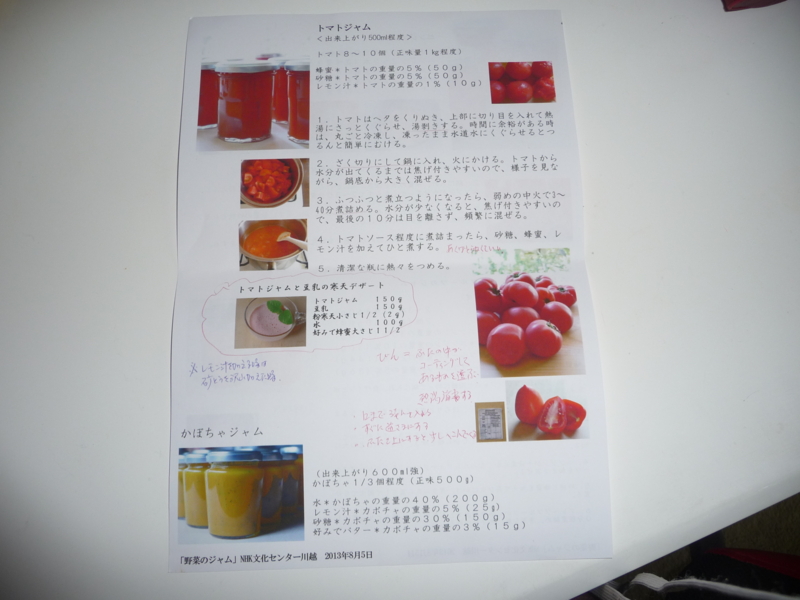 トマトジャム
＜出来上がり500ml程度＞
トマト８～１０個（正味量１kg程度）
蜂蜜＊トマトの重量の５％（５０ｇ）
砂糖＊トマトの重量の５％（５０ｇ）
レモン汁＊トマトの重量の１％（１０ｇ）
１．トマトはヘタをくりぬき、上部に切り目を入れて熱
湯にさっとくぐらせ、湯剥きする。時間に余裕がある時
は、丸ごと冷凍し、凍ったまま水道水にくぐらせるとつ
るんと簡単にむける。
２．ざく切りにして鍋に入れ、火にかける。トマトから
水分が出てくるまでは焦げ付きやすいので、様子を見な
がら、鍋底から大きく混ぜる。
３．ふつふつと煮立つようになったら、弱めの中火で3～
40分煮詰める。水分が少なくなると、焦げ付きやすいの
で、最後の１０分は目を離さず、頻繁に混ぜる。
４．トマトソース程度に煮詰まったら、砂糖、蜂蜜、レ
モン汁を加えてひと煮する。
５．清潔な瓶に熱々をつめる。
トマトジャムと豆乳の寒天デザート
トマトジャム　１５０ｇ
豆乳　１５０ｇ
粉寒天小さじ１/２（２ｇ）
水　１００ｇ
好みで蜂蜜大さじ１１/２
びん＝ふたの中の
かぼちゃジャム
（出来上がり６００ml強）
かぼちゃ１/３個程度（正味５００ｇ）
水＊かぼちゃの重量の４０％（２００ｇ）
レモン汁＊カボチャの重量の５％（２５ｇ）
砂糖＊カボチャの重量の３０％（１５０ｇ）
好みでバター＊カボチャの重量の３％（１５ｇ）
「野菜のジャム」NHK文化センター川越　2013年8月5日